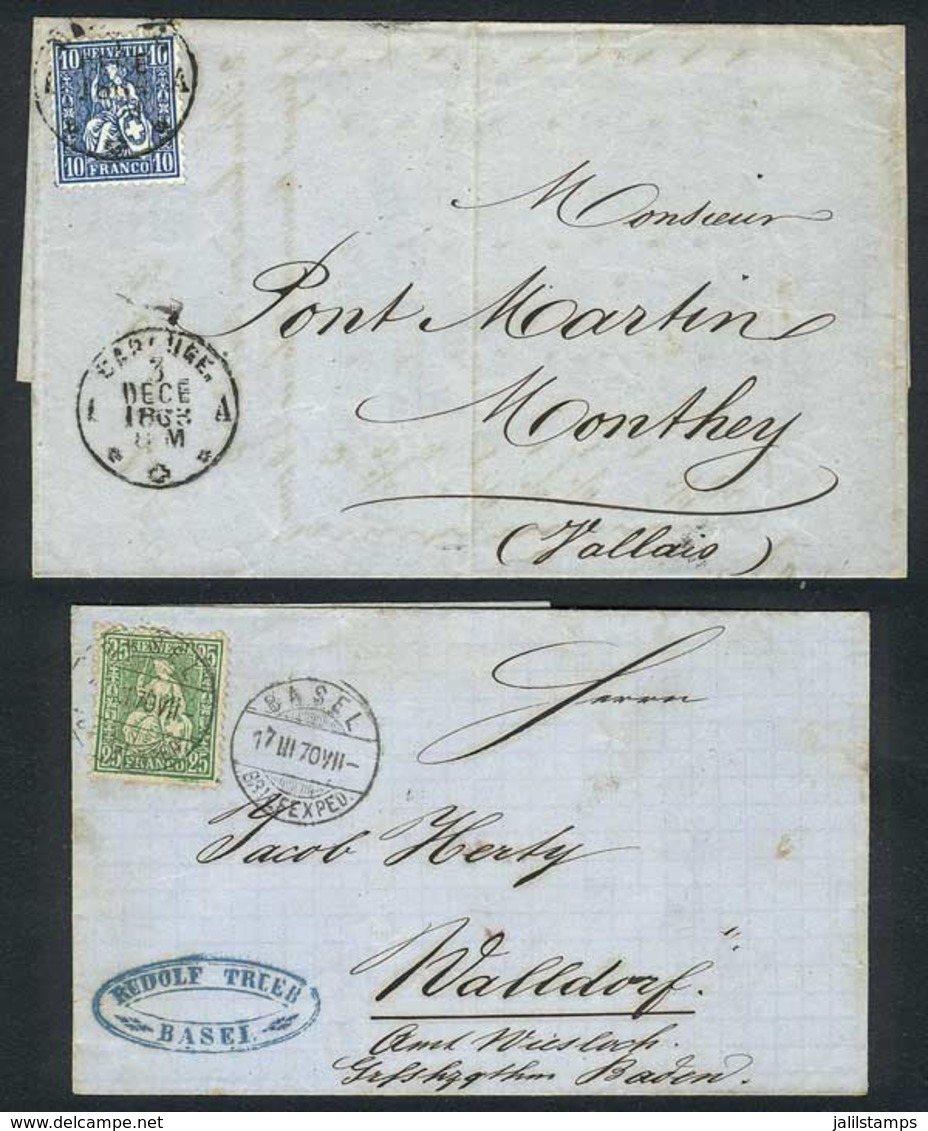 10 HELVETIA 10
10 FRANCO 10
Monsieur
Pont Martin
Monthey
(Vallais)
CAROUGE.
3
DECE
A
8 M
25 HELVETIA 25
25 FRANCO 25
BASEL
17 III 70 VII-
BRIEFEXPED.
Herrn
Jacob Herty
Walldorf.
Amt Wiesloch.
Grfshzgthm Baden.
RUDOLF TRUEB
BASEL
jalilstamps